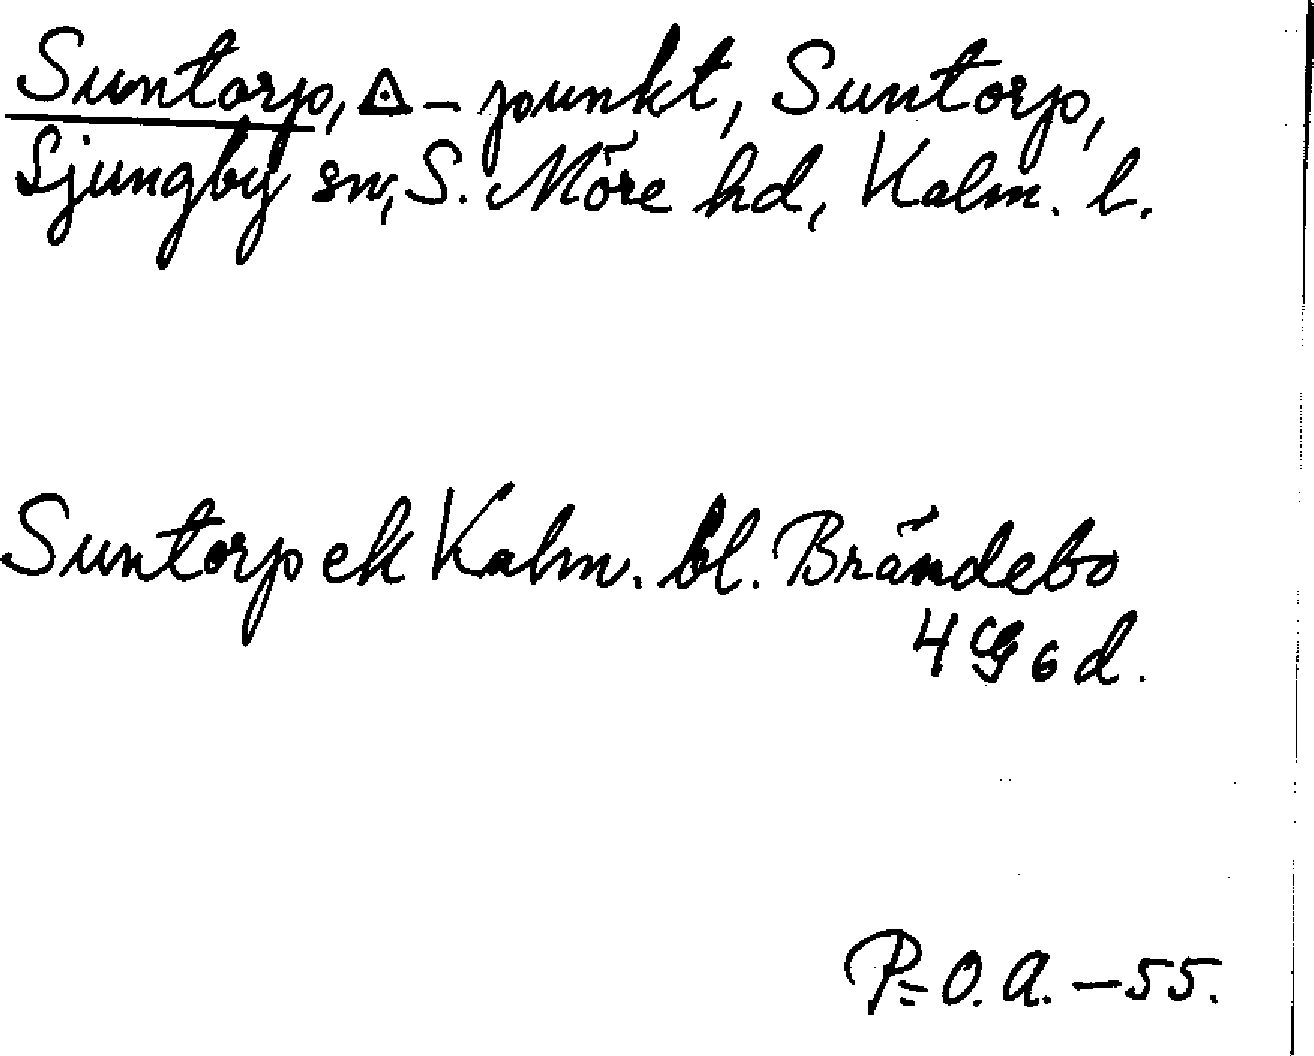 Suntorp, △ - punkt, Suntorp,
Ljungby sn, S. Möre hd, Kalm. l.
Suntorp ek Kalm. bl. Brändebo
4 G 6 d.
P-O. A. - 55.